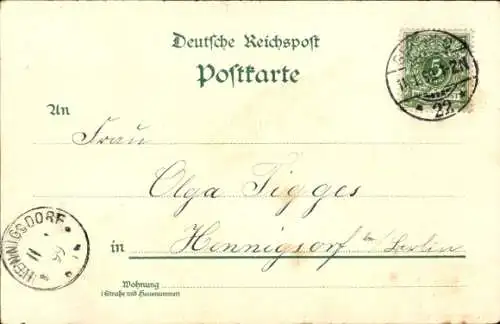 Deutsche Reichspost
Postkarte
5
22
An
Frau
Olga Tigges
HENNIGSDORF
11
99
in Hennigsdorf b/ Berlin
Wohnung
(Straße und Hausnummer)